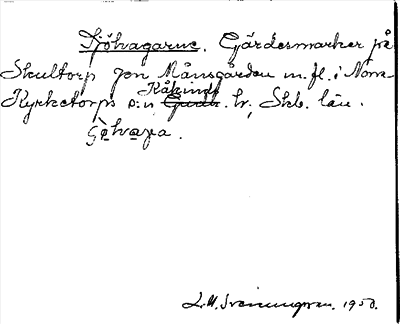 Sjöhagarne. Gärdesmarker på
Skultorp Jon Månsgården m.fl. i Norra
Kyrketorps s:n Kåkinds hr, Skb. län.
L.M. Svenungsson. 1950.